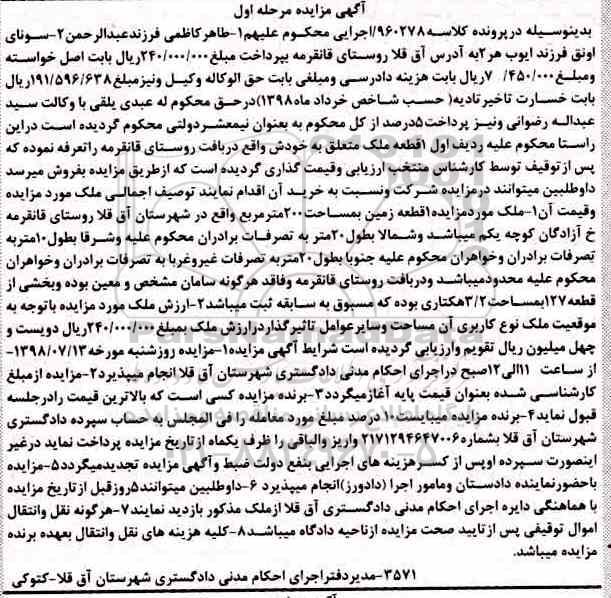 آگهی مزایده مرحله اول
بدینوسیله در پرونده کلاسه ۹۶۰۲۷۸/اجرایی محکوم علیهم ۱-طاهر کاظمی فرزند عبدالرحمن ۲-سونای
اونق فرزند ایوب هر ۲ به آدرس آق قلا روستای قانقرمه بپرداخت مبلغ ۲۴۰/۰۰۰/۰۰۰ریال بابت اصل خواسته
ومبلغ ۷/۴۵۰/۰۰۰ریال بابت هزینه دادرسی ومبلغی بابت حق الوکاله وکیل ونیز مبلغ ۱۹۱/۵۹۶/۶۳۸ریال
بابت خسارت تاخیر تادیه( حسب شاخص خرداد ماه ۱۳۹۸)در حق محکوم له عبدی یلقی با وکالت سید
عبداله رضوانی ونیز پرداخت ۵درصد از کل محکوم به بعنوان نیمعشر دولتی محکوم گردیده است در این
راستا محکوم علیه ردیف اول ۱قطعه ملک متعلق به خودش واقع در بافت روستای قانقرمه را تعرفه نموده که
پس از توقیف توسط کارشناس منتخب ارزیابی وقیمت گذاری گردیده است که از طریق مزایده بفروش میرسد
داوطلبین میتوانند در مزایده شرکت ونسبت به خرید آن اقدام نمایند توصیف اجمالی ملک مورد مزایده
وقیمت آن ۱-ملک مورد مزایده ۱قطعه زمین بمساحت ۲۰۰مترمربع واقع در شهرستان آق قلا روستای قانقرمه
خ آزادگان کوچه یکم میباشد وشمالا بطول ۲۰متر به تصرفات برادران محکوم علیه وشرقا بطول ۱۰متر به
تصرفات برادران وخواهران محکوم علیه جنوبا بطول ۲۰متر به تصرفات غیر وغربا به تصرفات برادران وخواهران
محکوم علیه محدود میباشد ودر بافت روستای قانقرمه وفاقد هرگونه سامان مشخص و معین بوده وبخشی از
قطعه ۱۲۷بمساحت ۳/۲هکتاری بوده که مسبوق به سابقه ثبت میباشد ۲-ارزش ملک مورد مزایده باتوجه به
موقعیت ملک نوع کاربری آن مساحت وسایر عوامل تاثیر گذار در ارزش ملک بمبلغ ۲۴۰/۰۰۰/۰۰۰ریال دویست و
چهل میلیون ریال تقویم وارزیابی گردیده است شرایط آگهی مزایده ۱-مزایده روز شنبه مورخه ۱۳۹۸/۰۷/۱۳-
از ساعت ۱۱الی ۱۲صبح در اجرای احکام مدنی دادگستری شهرستان آق قلا انجام میپذیرد ۲-مزایده از مبلغ
کارشناسی شده بعنوان قیمت پایه آغاز میگردد ۳-برنده مزایده کسی است که بالاترین قیمت را در جلسه
قبول نماید ۴-برنده مزایده میبایست ۱۰درصد مبلغ مورد معامله را فی المجلس به حساب سپرده دادگستری
شهرستان آق قلا بشماره ۲۱۷۱۲۹۴۶۴۷۰۰۶ واریز والباقی را ظرف یکماه از تاریخ مزایده پرداخت نماید در غیر
اینصورت سپرده او پس از کسر هزینه های اجرایی بنفع دولت ضبط وآگهی مزایده تجدید میگردد ۵-مزایده
با حضور نماینده دادستان ومامور اجرا (دادورز)انجام میپذیرد ۶-داوطلبین میتوانند ۵روز قبل از تاریخ مزایده
با هماهنگی دایره اجرای احکام مدنی دادگستری آق قلا از ملک مذکور بازدید نمایند ۷-هرگونه نقل وانتقال
اموال توقیفی پس از تایید صحت مزایده از ناحیه دادگاه میباشد ۸-کلیه هزینه های نقل وانتقال بعهده برنده
مزایده میباشد.
۳۵۷۱-مدیر دفتر اجرای احکام مدنی دادگستری شهرستان آق قلا-کتوکی